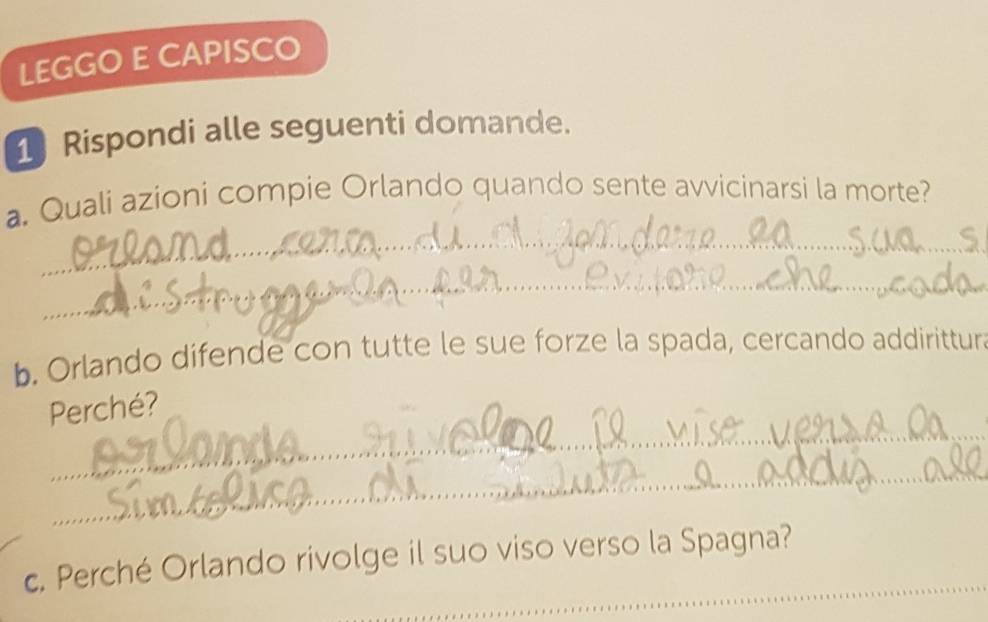 LEGGO E CAPISCO
1 Rispondi alle seguenti domande.
a. Quali azioni compie Orlando quando sente avvicinarsi la morte?
orland cerca di d la sua s
distruggerla per che cada
b. Orlando difende con tutte le sue forze la spada, cercando addirittura
Perché?
orlando rivolge il viso versa la
di a addio all
c. Perché Orlando rivolge il suo viso verso la Spagna?